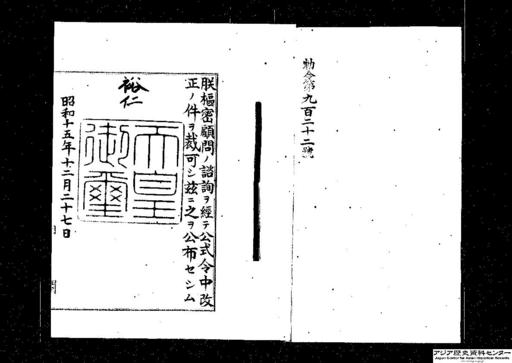 勅令第九百二十二號
朕樞密顧問ノ諮詢ヲ經テ公式令中改
正ノ件ヲ裁可シ茲ニ之ヲ公布セシム
裕仁
天皇
御璽
昭和十五年十二月二十七日
アジア歴史資料センター
Japan Center for Asian Historical Records